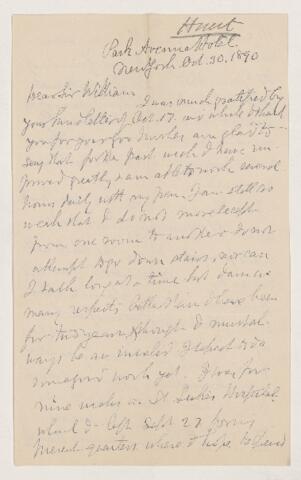 Hunt
Park Avenue Hotel
New York Oct. 30. 1890
Dear Sir William
I was much gratified by
your kind letter of Oct. 17. and while I thank
you for your good wishes am glad to
say that for the past week I have im-
proved greatly & am able to work several
hours daily with my pen. I am still so
weak that I do not move except
from one room to another & do not
attempt to go down stairs, nor can
I talk long at a time but I am in
many respects better than I have been
for two years, & though I must al-
ways be an invalid I expect to do
some good work yet. I was for
nine weeks in St Luke's Hospital
which I left Sept 27 for my
present quarters where I hope to spend